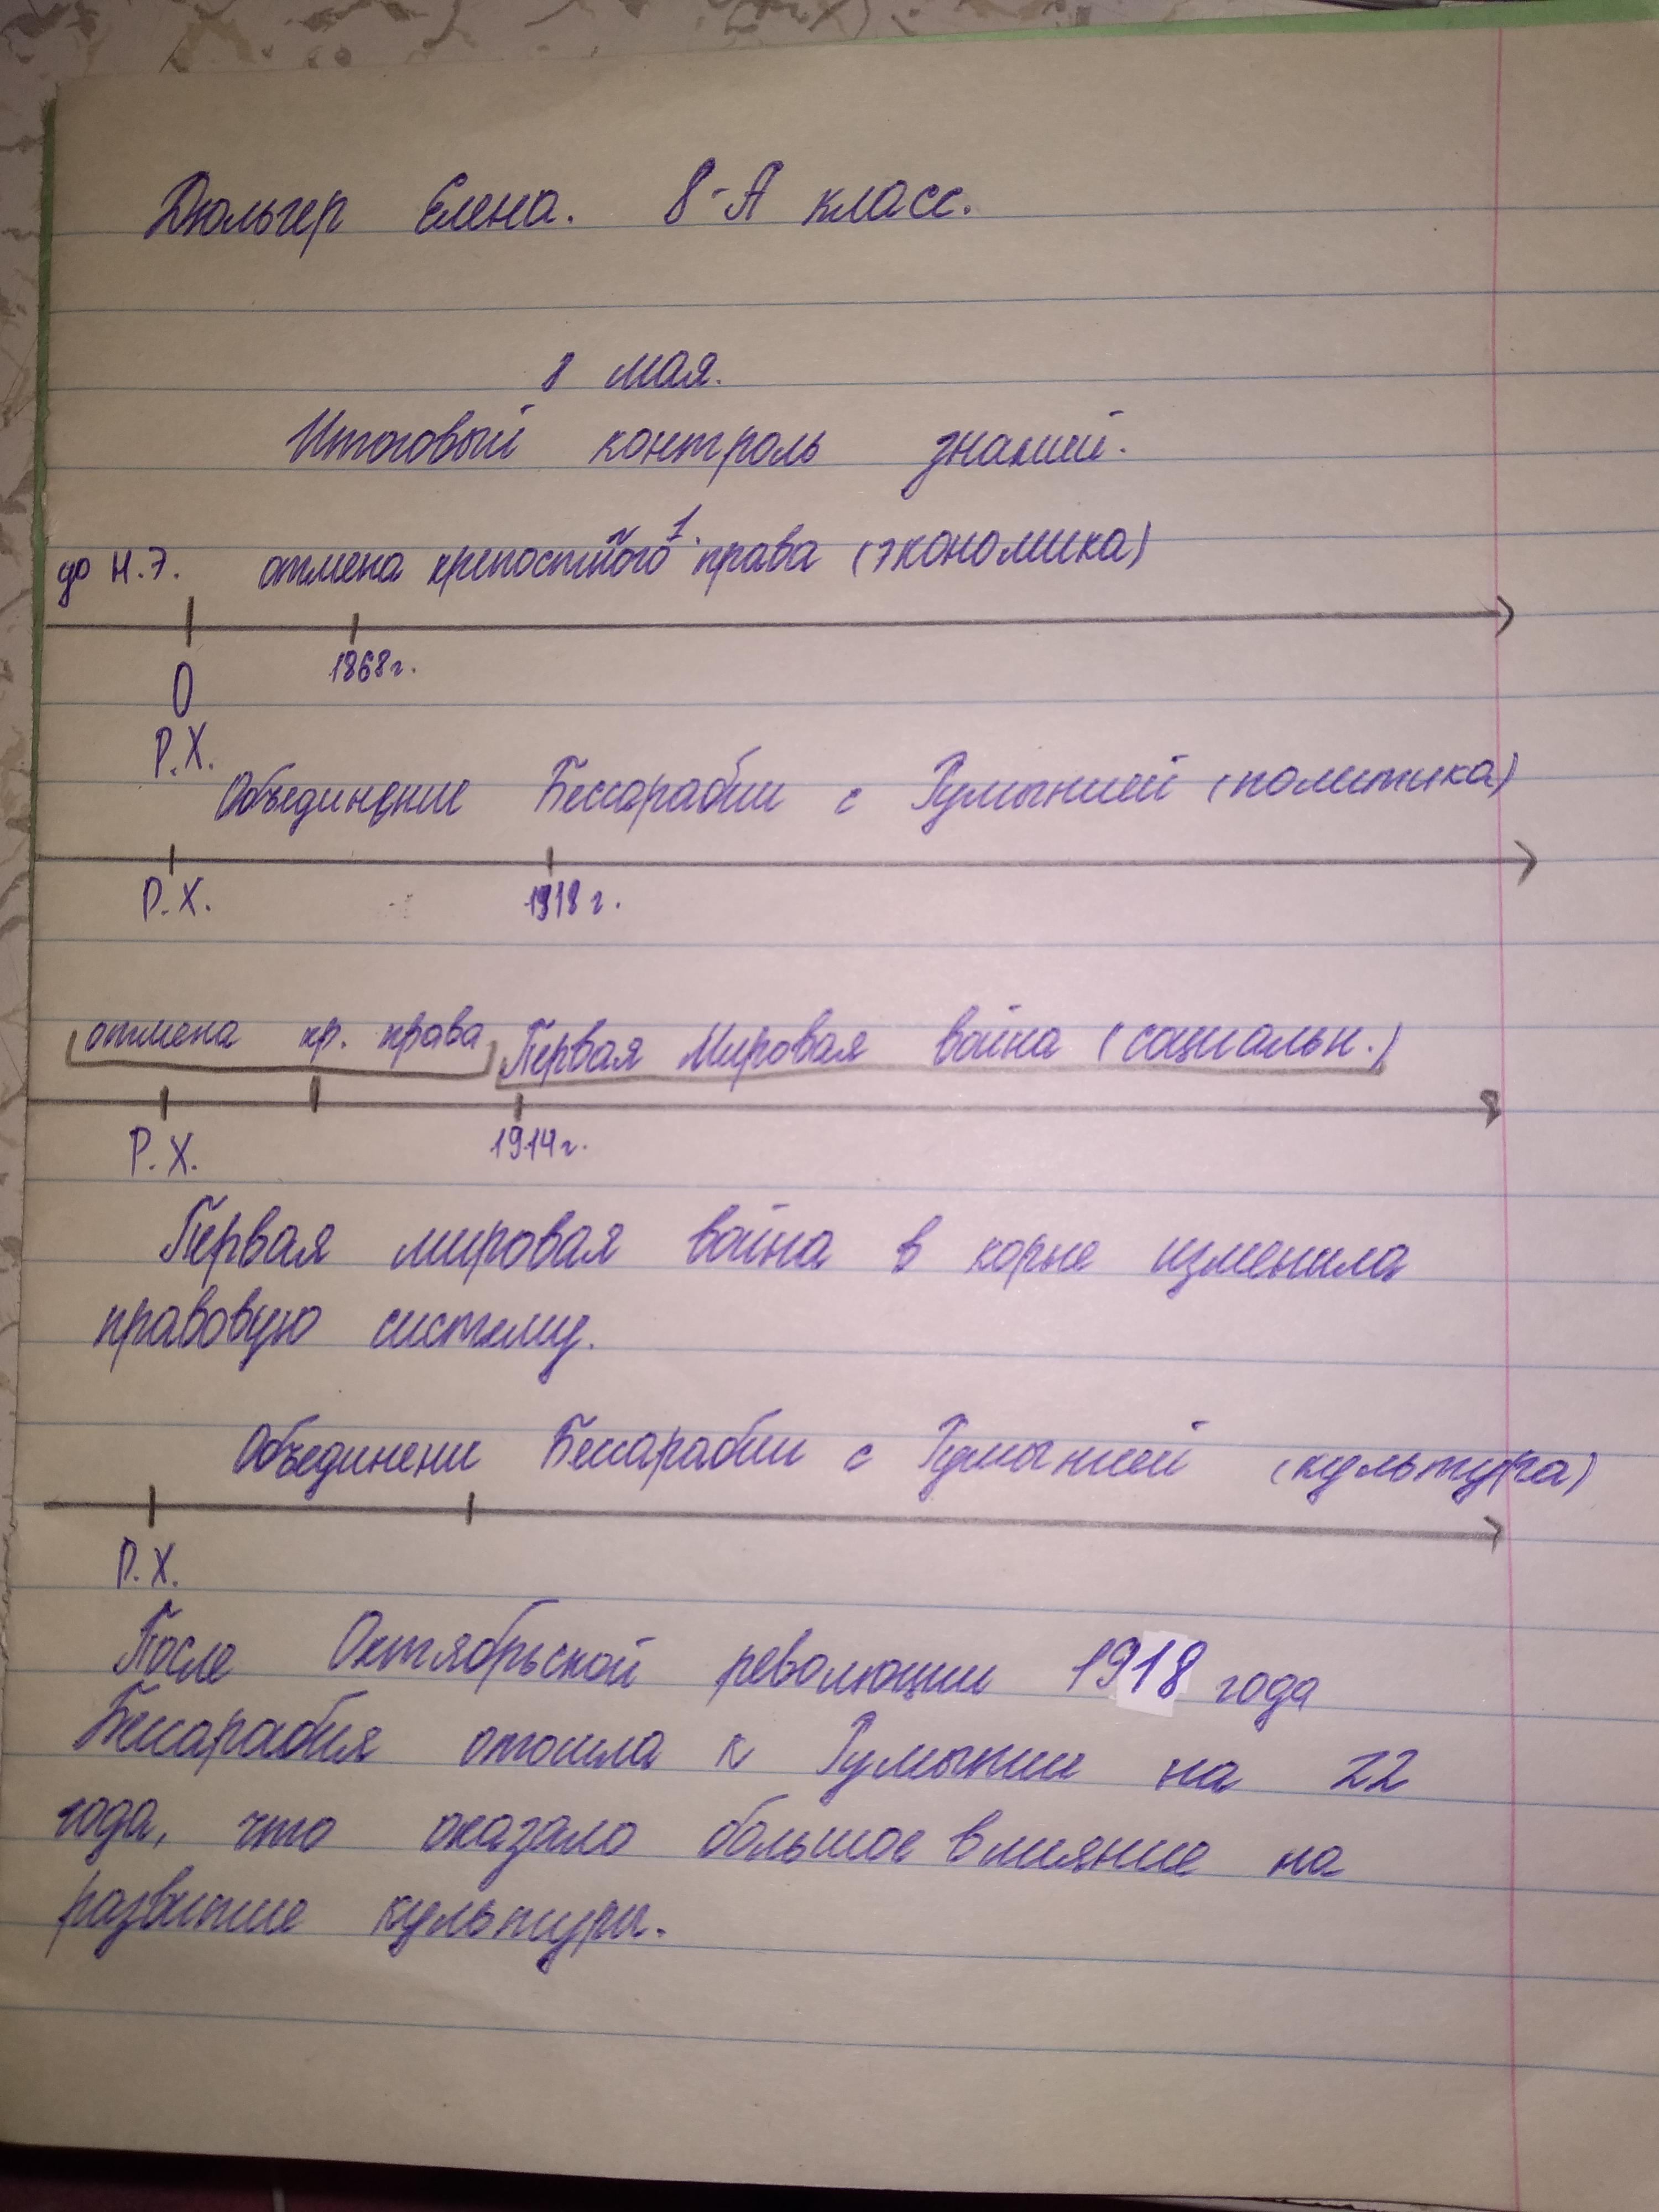 Дюльгер Елена. 8-А класс.
8 мая.
Итоговый контроль знаний.
1.
до н.э. отмена крепостного права (экономика)
0 1868г.
Р.Х.
Объединение Бессарабии с Румынией (политика)
Р.Х. 1918 г.
отмена кр. права Первая Мировая война (социальн.)
Р.Х. 1914г.
Первая мировая война в корне изменила
правовую систему.
Объединени Бессарабии с Румынией (культура)
Р.Х.
После Октябрьской революции 1918 года
Бессарабия отошла к Румынии на 22
года, что оказало большое влияние на
развитие культуры.